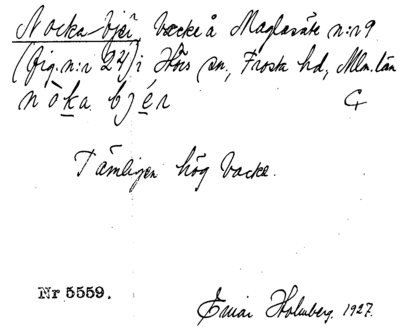 Nocka bjär, backe å Maglasäte n:r 9
(fig. n:r 24) i Hörs sn., Frosta hd, Mlm. län
nòka bjér
Tämligen hög backe.
Nr 5559.
Einar Holmberg. 1927.